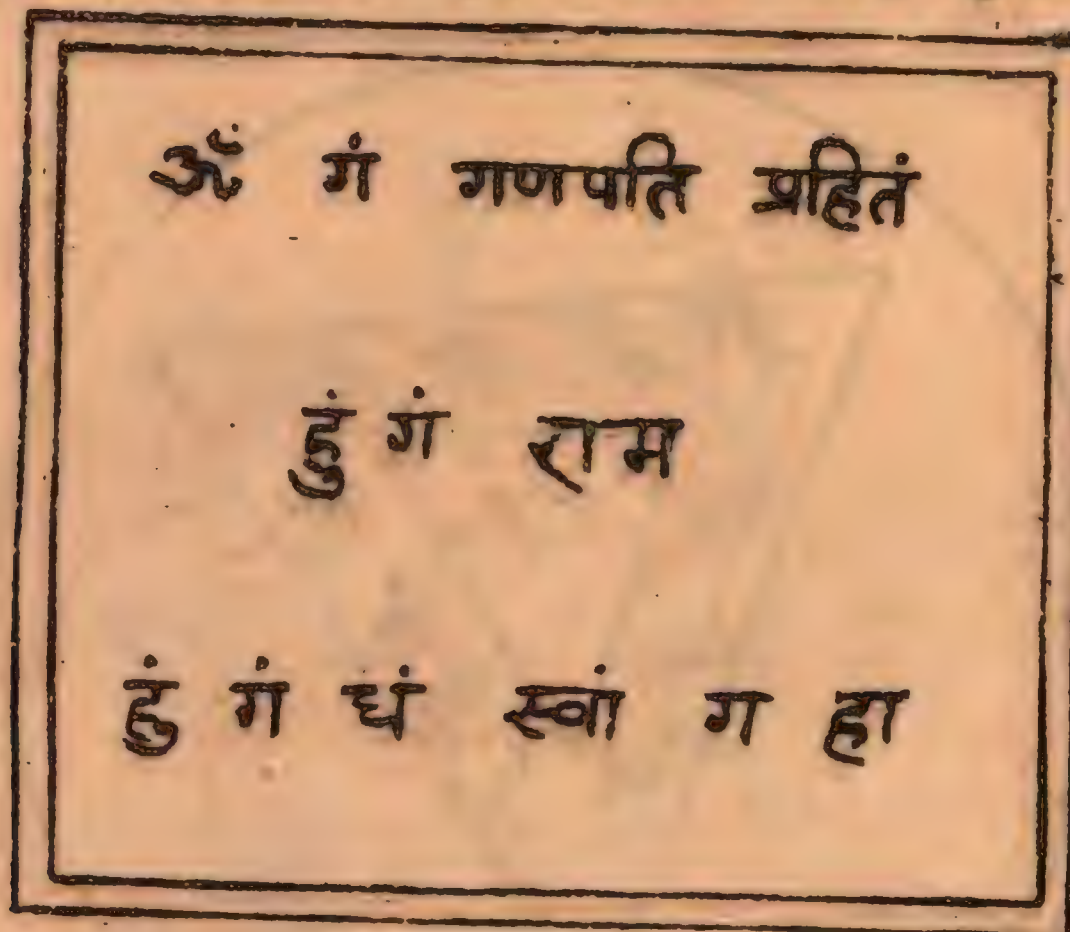 ॐ गं गणपति प्रहितं
डुं गं राम
डुं गं घं स्वां ग हा